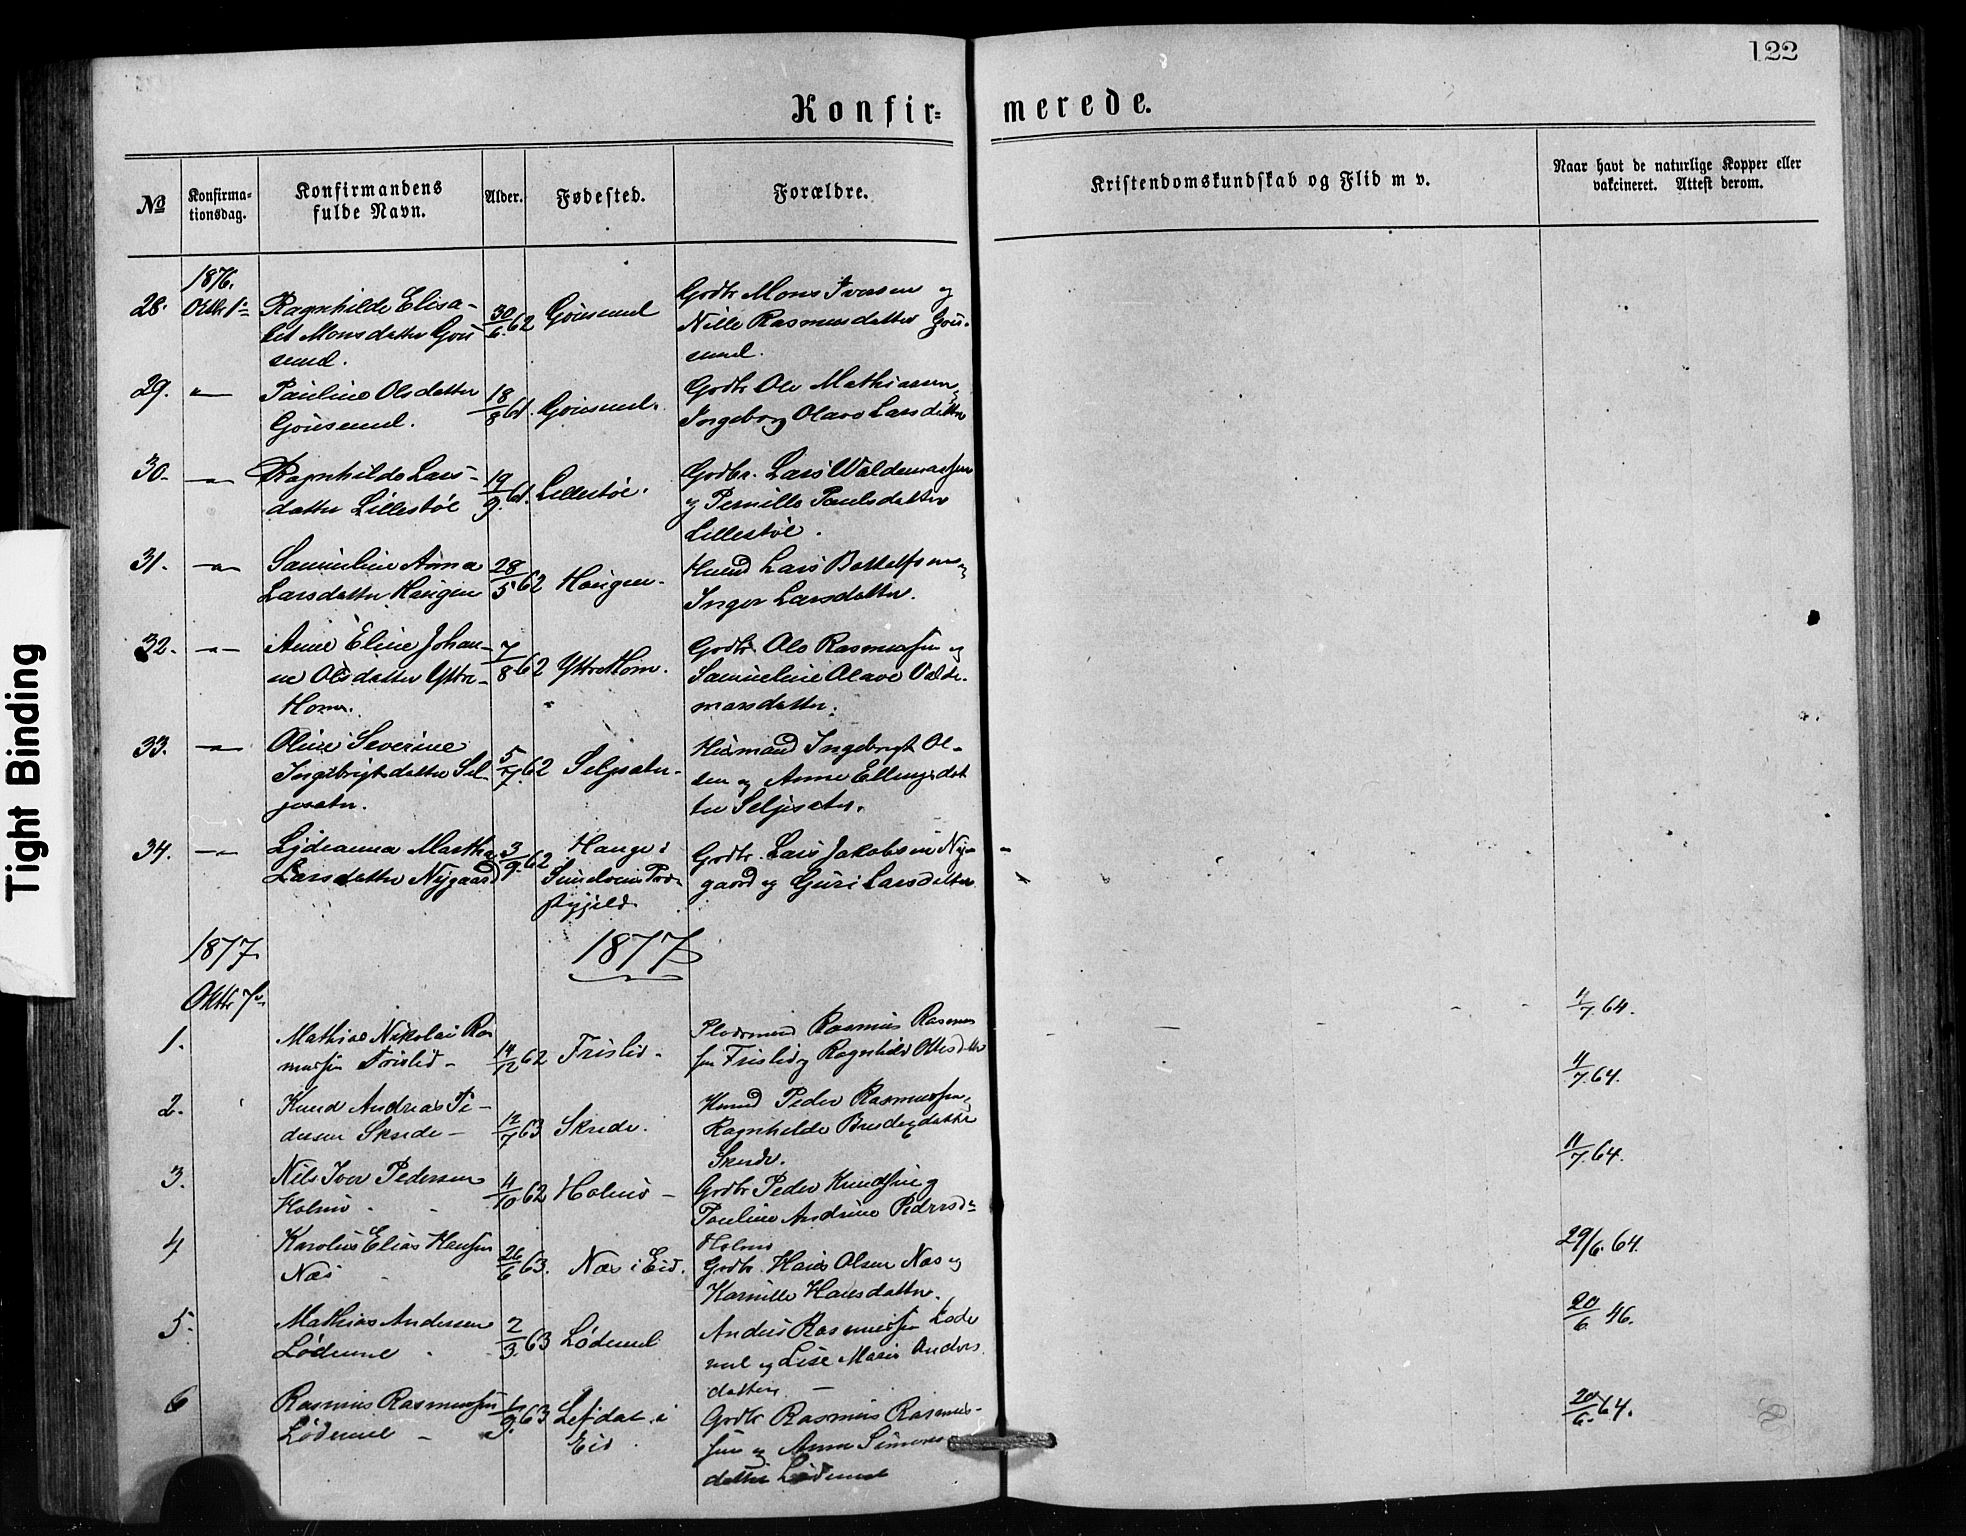 122
Konfir= merede.
№
Konfirma-
tionsdag.
Konfirmandens
fulde Navn.
Alder.
Fødested.
Forældre.
Kristendomskundskab og Flid m v.
Naar havt de naturlige Kopper eller
vakcineret. Attest derom.
1876.
28.
Oktbr 1ª
Ragnhilde Elisa-
bet Monsdatter
30/6 62
Gdbr Mons Iversen og
Nille Rasmusdatter
29.
Pauline Olsdatter
18/8 61.
Gdbr Ole Mathiassen
Ingeborg Olave Larsdatter
30.
Ragnhilde Lars-
datter Lillestøl
19/9 61.
Lillestøl.
Gdbr. Lars Waldemarsen
og Pernille Paulsdatter
Lillestøl.
31.
Samueline Anna
Larsdatter Haugen
28/5 62
Haugen.
Husmd Lars
Inger Larsdatter.
32.
Anne Eline Johan-
ne Olsdatter Yttre-
Horn.
7/8 62
Yttre Horn.
Gdbr. Ole Rasmussen og
Samueline Olave Valde-
marsdatter.
33.
Oline Severine
Ingebrigtsdatter Sel-
jesæter.
5/7 62
Seljesæter.
Husmand Ingebrigt Ol-
sen og Anne Ellingsdat
ter Seljesæter.
34.
Martha
Larsdatter Nygaard
3/9 62
Hauge i
Gdbr. Lars Jakobsen Ny-
gaard og Guri Larsdatter
1877.
1877
Oktbr 7de
1.
Mathias Nikolai Ras
mussen Frislid -
14/12 62
Frislid -
Rasmus Rasmus
sen Frislid og Ragnhild
11/7 64.
2.
Knud Andreas Pe-
dersen Skrede -
12/7 63
Skrede.
Husmd Peder Rasmussen
Ragnhilde
Skrede.
11/7 64.
3.
Nils Iver Pedersen
Holmø
4/10 62
Holmø -
Gdbr Peder Knudsen og
Pauline Andrine Pedersd.
Holmø
11/7 64.
4
Karolus Elias Hansen
Næs
26/6 63.
Næs i Eid.
Gdbr. Hans Olsen Næs og
Hansdatter.
29/6 64.
5.
Mathias Andersen
Lødemel
2/3 63
Lødemel
Anders Rasmussen Løde
mel og Lise Marie Anders
datter. -
20/6 46.
6
Rasmus Rasmussen
Lødemel -
63
Lefdal i
Eid.
Gdbr Rasmus Rasmus-
sen og Anna Simons
datter Lødemel
20/6 64.
Tight Binding